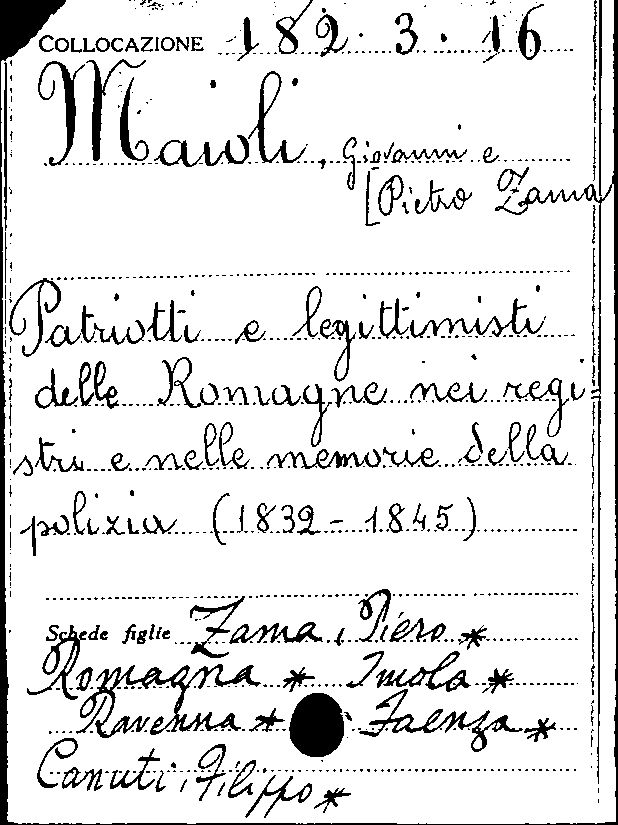 COLLOCAZIONE 182. 3. 16
Maioli, Giovanni e
[Pietro Zama
Patriotti e legittimisti
delle Romagne nei regi=
stri e nelle memorie della
polizia (1832 - 1845)
Schede figlie Zama, Piero *
Romagna * Imola *
Ravenna * Faenza *
Canuti, Filippo *